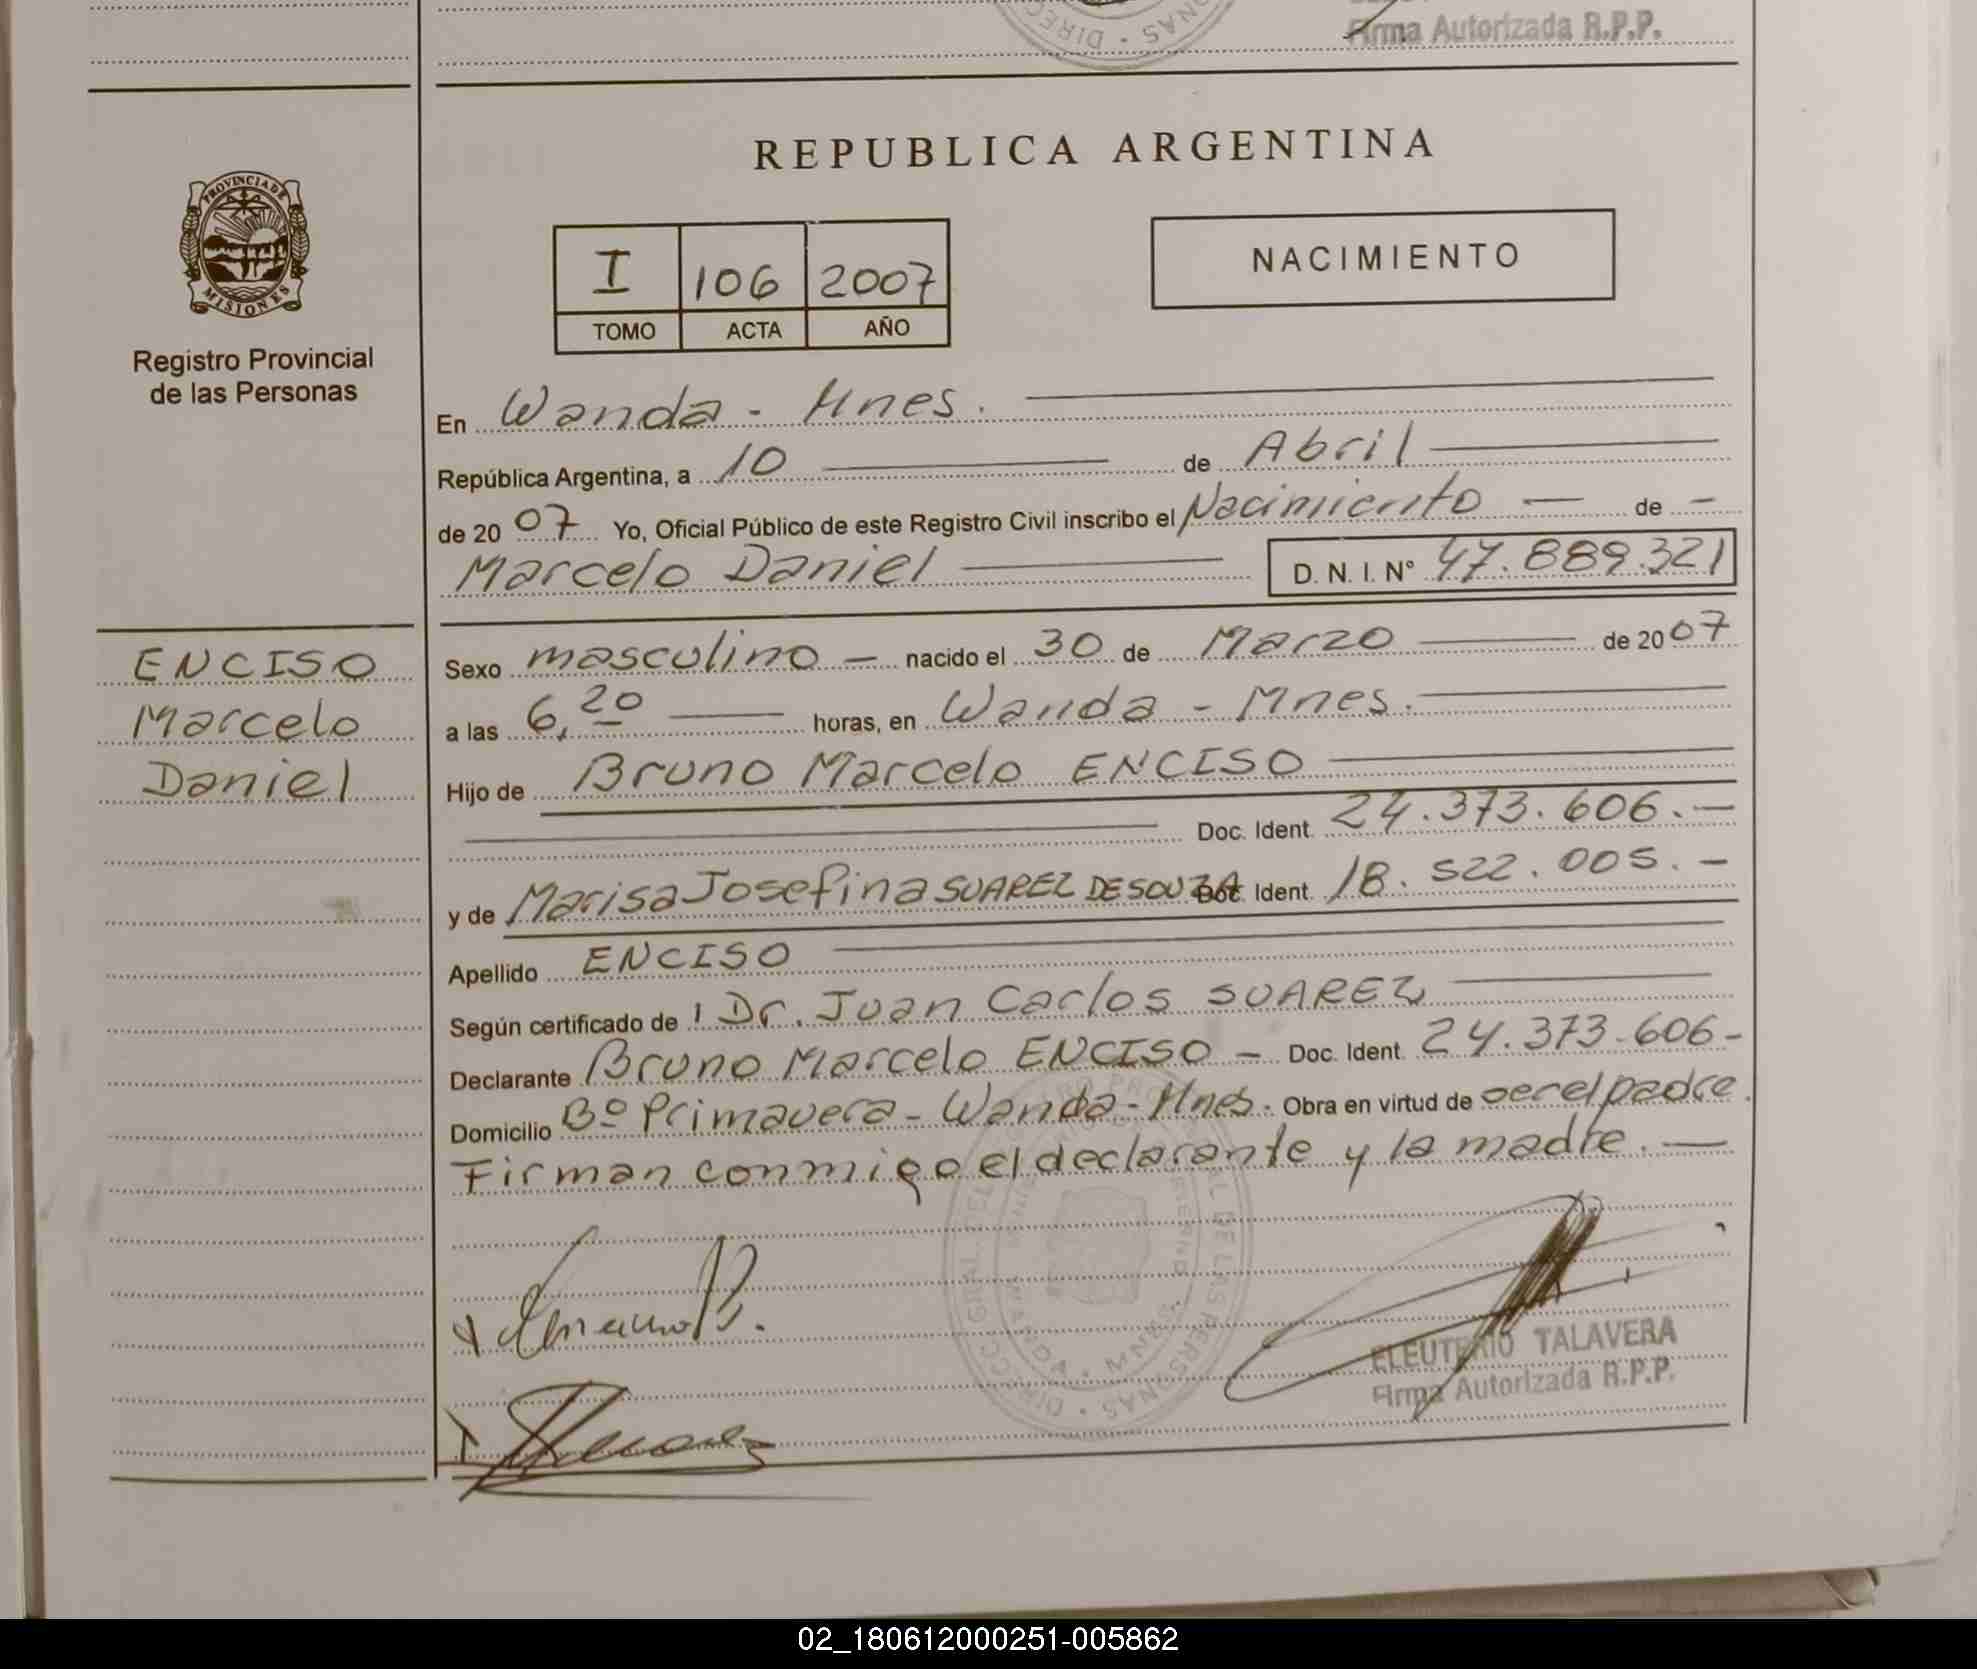 Firma Autorizada R.P.P.
REPUBLICA ARGENTINA
PROVINCIA DE
MISIONES
Registro Provincial
de las Personas
I 106 2007
TOMO ACTA AÑO
NACIMIENTO
En Wanda - Mnes.
República Argentina, a 10 de Abril
de 2007 Yo, Oficial Público de este Registro Civil inscribo el Nacimiento — de —
Marcelo Daniel D. N. I. N° 47.889.321
ENCISO
Marcelo
Daniel
Sexo masculino — nacido el 30 de Marzo de 2007
a las 6,20 horas, en Wanda - Mnes.
Hijo de Bruno Marcelo ENCISO
Doc. Ident. 24.373.606.—
y de Marisa Josefina SUAREZ DE SOUZA Doc. Ident. 18.522.005.—
Apellido ENCISO
Según certificado de Dr. Juan Carlos SUAREZ
Declarante Bruno Marcelo ENCISO — Doc. Ident. 24.373.606-
Domicilio Bº Primavera - Wanda - Mnes. Obra en virtud de ser el padre.
Firman conmigo el declarante y la madre.—
ELEUTERIO TALAVERA
Firma Autorizada R.P.P.
02_180612000251-005862